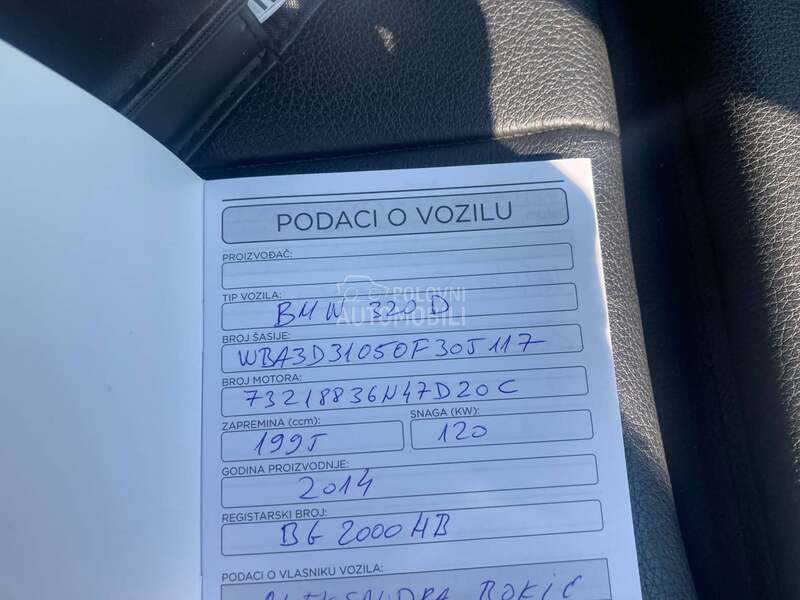 PODACI O VOZILU
PROIZVOĐAČ:
TIP VOZILA:
BMW 320D
POLOVNI
AUTOMOBILI
BROJ ŠASIJE:
WBA3D31050F305117
BROJ MOTORA:
73218836N47D20C
ZAPREMINA (ccm):
1995
SNAGA (KW):
120
GODINA PROIZVODNJE:
2014
REGISTARSKI BROJ:
BG 2000HB
PODACI O VLASNIKU VOZILA:
ALEKSANDRA ROKIC